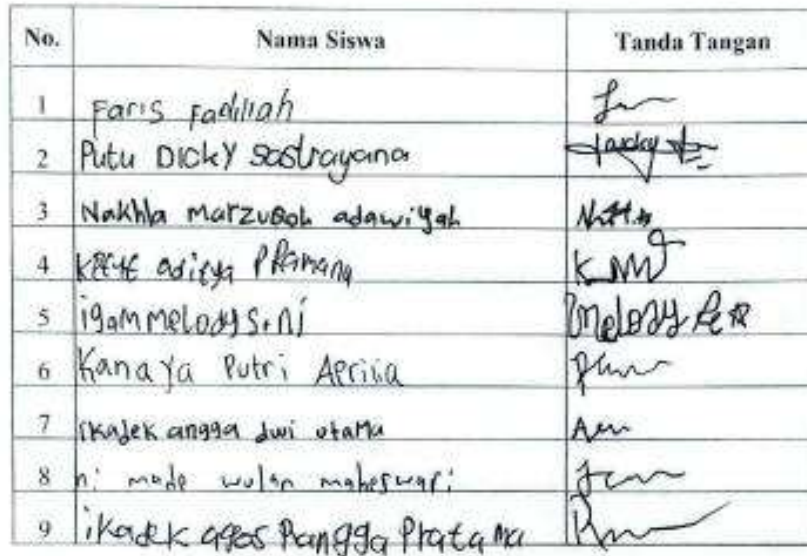 No. Nama Siswa Tanda Tangan
1 Faris Fadillah
2 Putu Dicky Sastrayana
3 Nakhla marzuqoh adawiyah
4 Ketut aditya Pramana
5 igam melody
6 Kanaya Putri Aprilia
7 ikadek angga dwi utama
8 ni made wulan maheswari
9 ikadek agos Rangga Pratama